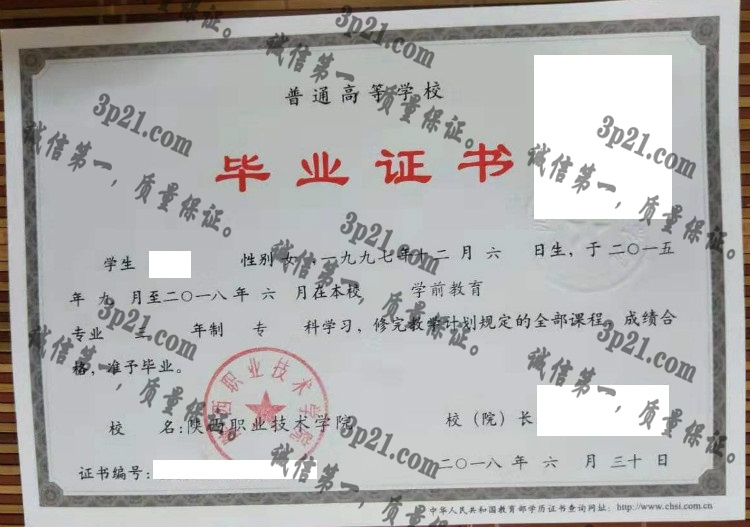 普通高等学校
毕业证书
学生 性别 女，一九九七年十二月六 日生，于二〇一五
年 九 月至二〇一八年 六 月在本校 学前教育
专业 三 年制 专 科学习，修完教学计划规定的全部课程，成绩合
格，准予毕业。
校 名：陕西职业技术学院
校（院）长
证书编号：
二〇一八年 六 月 三十日
中华人民共和国教育部学历证书查询网址：http://www.chsi.com.cn
陕西职业技术学院
3p21.com
诚信第一，质量保证。
3p21.com
诚信第一，质量保证。
3p21.com
诚信第一，质量保证。
3p21.com
诚信第一，质量保证。
3p21.com
诚信第一，质量保证。
3p21.com
诚信第一，质量保证。
3p21.com
诚信第一，质量保证。